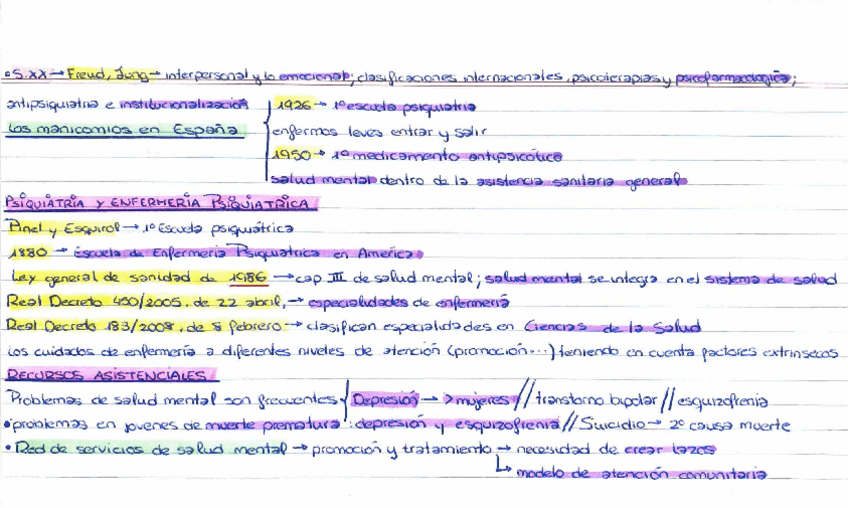 •S.XX→ Freud, Jung→ interpersonal y lo emocional; clasificaciones internacionales, psicoterapias y psicofarmacológica;
antipsiquiatria e institucionalización
Los manicomios en España
1926→ 1º escuela psiquiatria
enfermos leves entrar y salir
1950→ 1º medicamento antipsicótico
salud mental dentro de la asistencia sanitaria general
PSIQUIATRÍA Y ENFERMERÍA PSIQUIATRICA
Pinel y Esquirol→ 1º Escuela psiquiátrica
1880 → Escuela de Enfermería Psiquiatrica en America
Ley general de sanidad de 1986 →cap III de salud mental; salud mental se integra en el sistema de salud
Real Decreto 450/2005, de 22 abril,→ especialidades de enfermería
Real Decreto 183/2008, de 8 febrero→ clasifican especialidades en Ciencias de la Salud
Los cuidados de enfermería a diferentes niveles de atención (promoción...) teniendo en cuenta factores extrinsecos
RECURSOS ASISTENCIALES
Problemas de salud mental son frecuentes { Depresión → >mujeres // transtorno bipolar // esquizofrenia
•problemas en jovenes de muerte prematura: depresión y esquizofrenia // Suicidio→ 2º causa muerte
• Red de servicios de salud mental → promoción y tratamiento → necesidad de crear lazos
↳ modelo de atención comunitaria